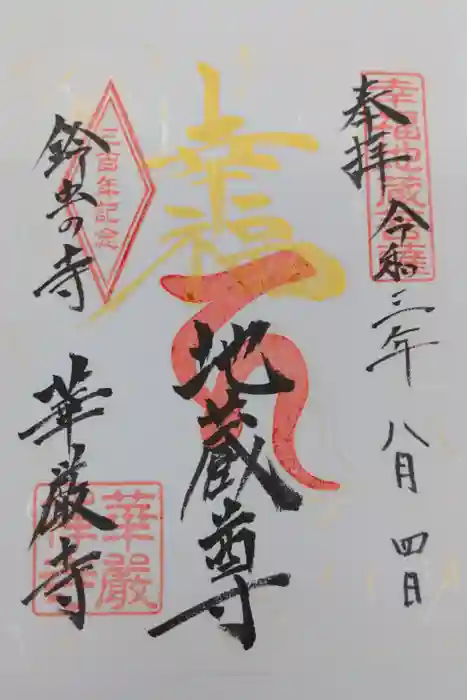 奉拝
令和三年
八月
四日
幸福地蔵菩薩
幸福
地蔵尊
三百年記念
鈴虫の寺
華厳寺
華嚴禅寺